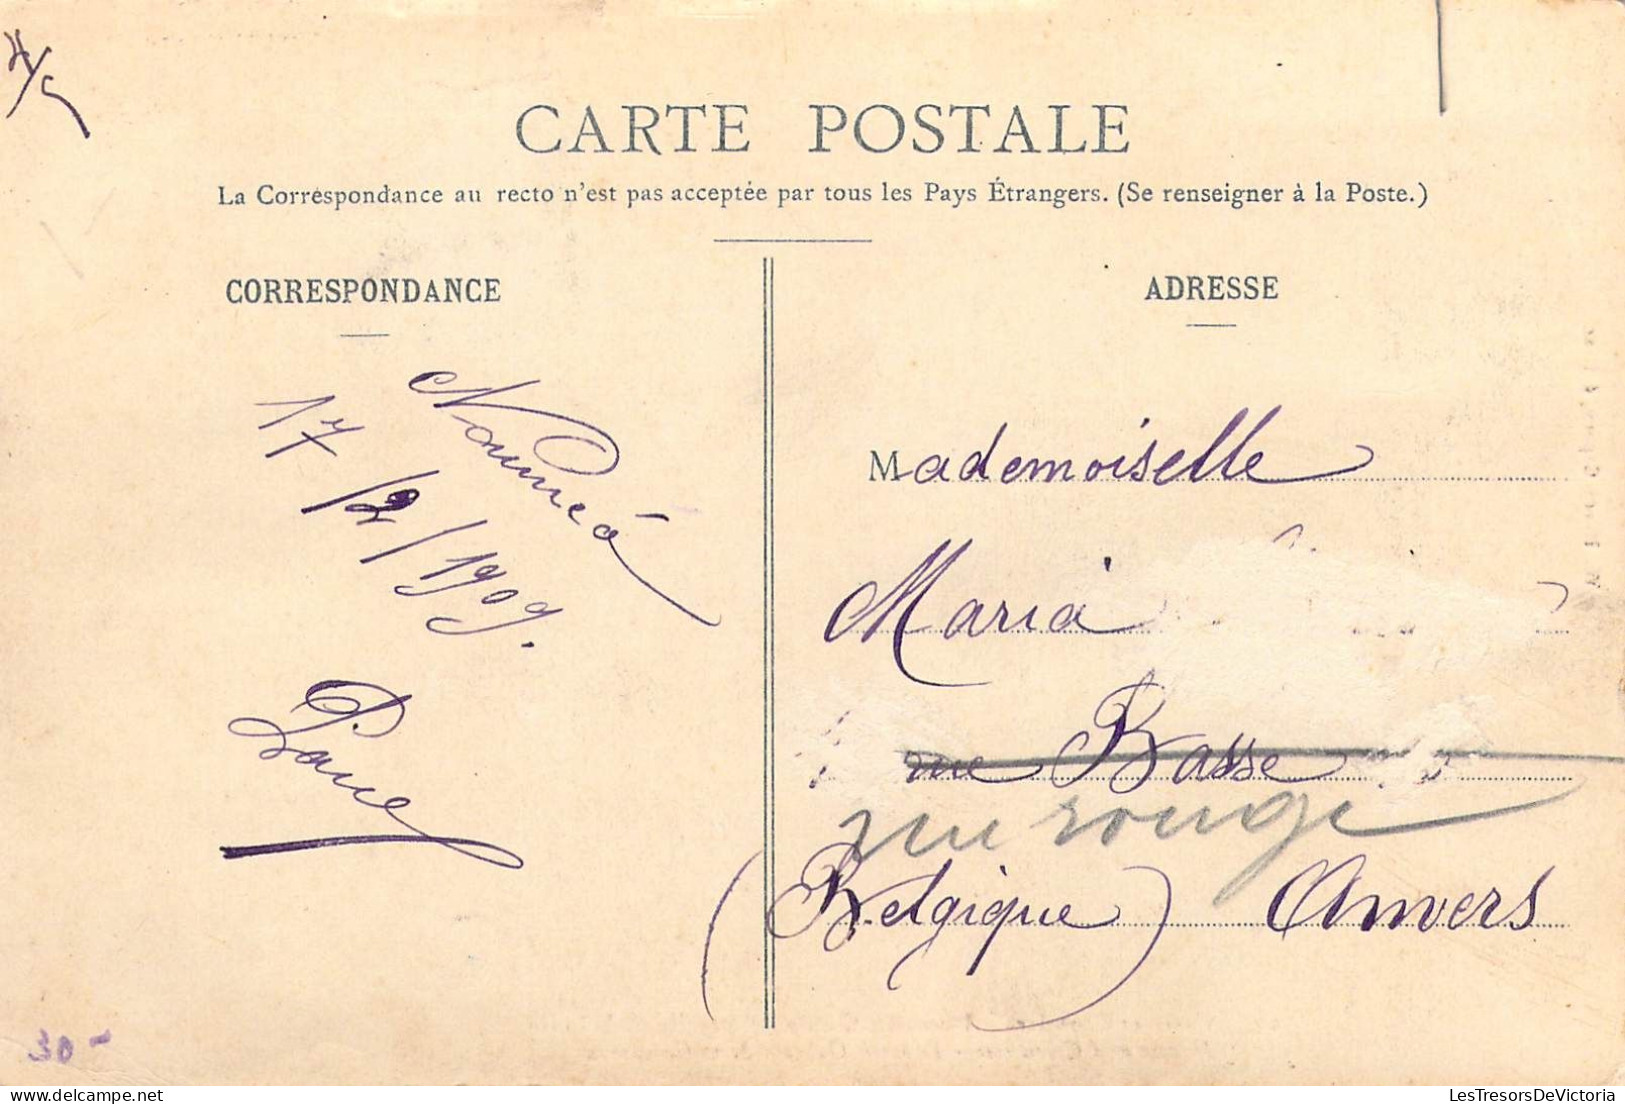 CARTE POSTALE
La Correspondance au recto n'est pas acceptée par tous les Pays Étrangers. (Se renseigner à la Poste.)
CORRESPONDANCE
Nouméa
17/2/1909.
ADRESSE
Mademoiselle
Maria
rue Basse
(Belgique) Anvers
30-
LesTresorsDeVictoria